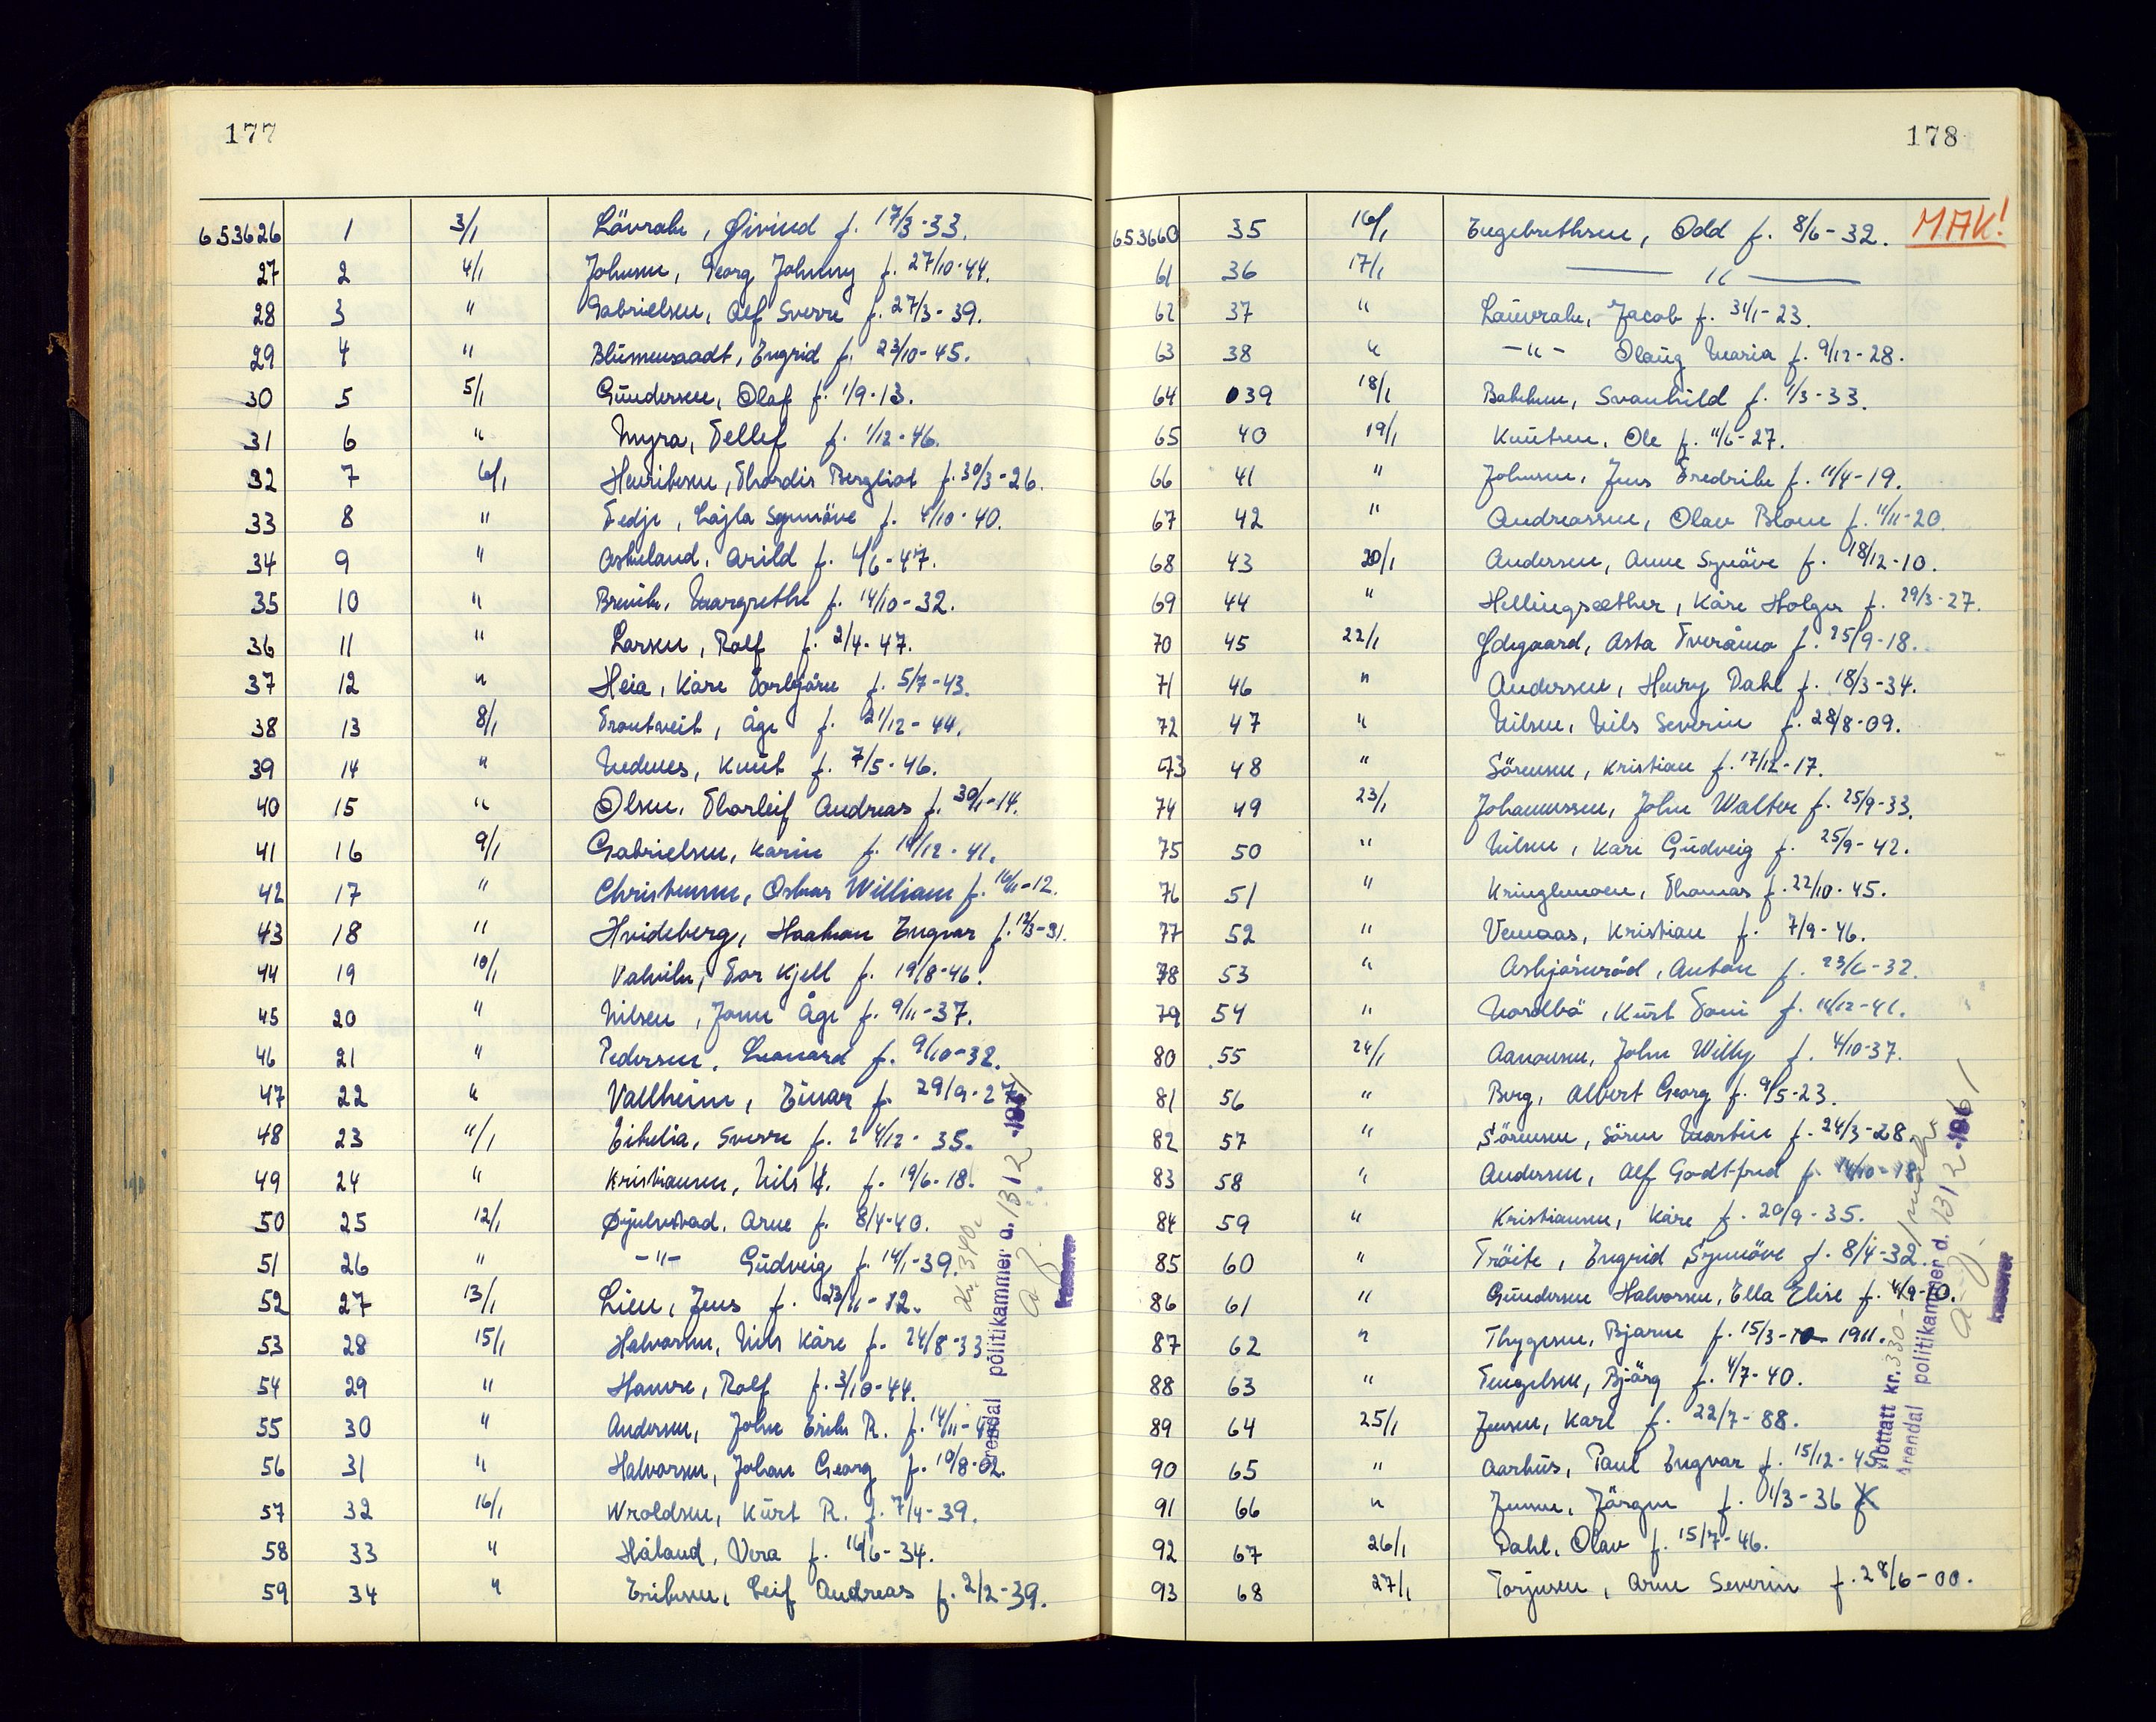 177
653626 1 3/1 Lövrak, Øivind f. 17/3-33.
27 2 4/1 Johnsen, Georg Johnny f. 27/10-44.
28 3 " Gabrielsen, Alf Sverre f. 27/3-39.
29 4 " Blumensaadt, Ingrid f. 23/10-45.
30 5 5/1 Gundersen, Olaf f. 1/9-13.
31 6 " Myra, Tellef f. 1/12-46.
32 7 6/1 Henriksen, Thordis Bergliot f. 30/3-26.
33 8 " Tedje, Lajla Synnöve f. 4/10-40.
34 9 " Askeland, Arild f. 4/6-47.
35 10 " Brevik, Margrethe f. 14/10-32.
36 11 " Larsen, Rolf f. 2/4-47.
37 12 " Heia, Kåre Torbjörn f. 5/7-43.
38 13 8/1 Trontveit, Åge f. 21/12-44.
39 14 " Nednes, Knut f. 7/5-46.
40 15 " Olsen, Thorleif Andreas f. 30/1-14.
41 16 9/1 Gabrielsen, Karin f. 14/12-41.
42 17 " Christensen, Oskar William f. 16/11-12.
43 18 " Hvideberg, Haakon Ingvar f. 12/3-31.
44 19 10/1 Valvik, Tor Kjell f. 19/8-46.
45 20 " Nilsen, Jonn Åge f. 9/11-37.
46 21 " Pedersen, Leonard f. 9/10-32.
47 22 " Vallheim, Einar f. 29/9-27
48 23 11/1 Eikelia, Sverre f. 24/12-35.
49 24 " Kristiansen, Nils K. f. 19/6-18.
50 25 12/1 Gjulestad, Arne f. 8/4-40.
51 26 " -"- Gudveig f. 14/1-39.
52 27 13/1 Lien, Jens f. 23/11-12.
53 28 15/1 Halvorsen, Nils Kåre f. 24/8-33
54 29 " Hamre, Rolf f. 3/10-44.
55 30 " Andersen, John Erik R. f. 14/11-
56 31 " Halvorsen, Johan Georg f. 10/8-02.
57 32 16/1 Wroldsen, Kurt R. f. 7/4-39.
58 33 " Håland, Vera f. 16/6-34.
59 34 " Eriksen, Leif Andreas f. 2/2-39.
Kr. 340.
Arendal politikammer d. 13/2 1961
kasserer
178
653660 35 16/1 Engebrethsen, Odd f. 8/6-32. MAK!
61 36 17/1 — " —
62 37 " Lauvrak, Jacob f. 31/1-23.
63 38 " -"- Olaug Maria f. 9/12-28.
64 039 18/1 Bakken, Svanhild f. 1/3-33.
65 40 19/1 Knutsen, Ole f. 11/6-27.
66 41 " Johnsen, Jens Fredrik f. 11/4-19.
67 42 " Andreassen, Olav Blom f. 11/11-20.
68 43 20/1 Andersen, Anne Synöve f. 18/12-10.
69 44 " Hellingsæther, Kåre Holger f. 29/3-27.
70 45 22/1 Ødegaard, Asta Tveråmo f. 25/9-18.
71 46 " Andersen, Henry Dahl f. 18/3-34.
72 47 " Nilsen, Nils Severin f. 28/8-09.
73 48 " Sörensen, Kristian f. 17/12-17.
74 49 23/1 Johannessen, John Walter f. 25/9-33.
75 50 " Nilsen, Kari Gudveig f. 25/9-42.
76 51 " Kringlemoen, Thomas f. 22/10-45.
77 52 " Vemaas, Kristian f. 7/9-46.
78 53 " Asbjörnröd, Anton f. 23/6-32.
79 54 " Nordbö, Kurt Toni f. 11/12-41.
80 55 24/1 Aanonsen, John Willy f. 4/10-37.
81 56 " Berg, Albert Georg f. 9/5-23.
82 57 " Sörensen, Sören Martin f. 24/3-28.
83 58 " Andersen, Alf Godtfred f. 14/10-18
84 59 " Kristiansen, Kåre f. 20/9-35.
85 60 " Tröite, Ingrid Synnöve f. 8/4-32.
86 61 " Gundersen Halvorsen, Ella Elise f. 4/9-10.
87 62 " Thygesen, Bjarne f. 15/3-10 1911.
88 63 " Tengelsen, Bjørg f. 4/7-40.
89 64 25/1 Jensen, Karl f. 22/7-88.
90 65 " Aarhus, Paul Ingvar f. 15/12-45
91 66 " Jensen, Jörgen f. 1/3-36
92 67 26/1 Dahl, Olav f. 15/7-46.
93 68 27/1 Torjusen, Arne Severin f. 28/6-00.
Mottatt kr. 330-
Arendal politikammer d. 13/2 1961
kasserer